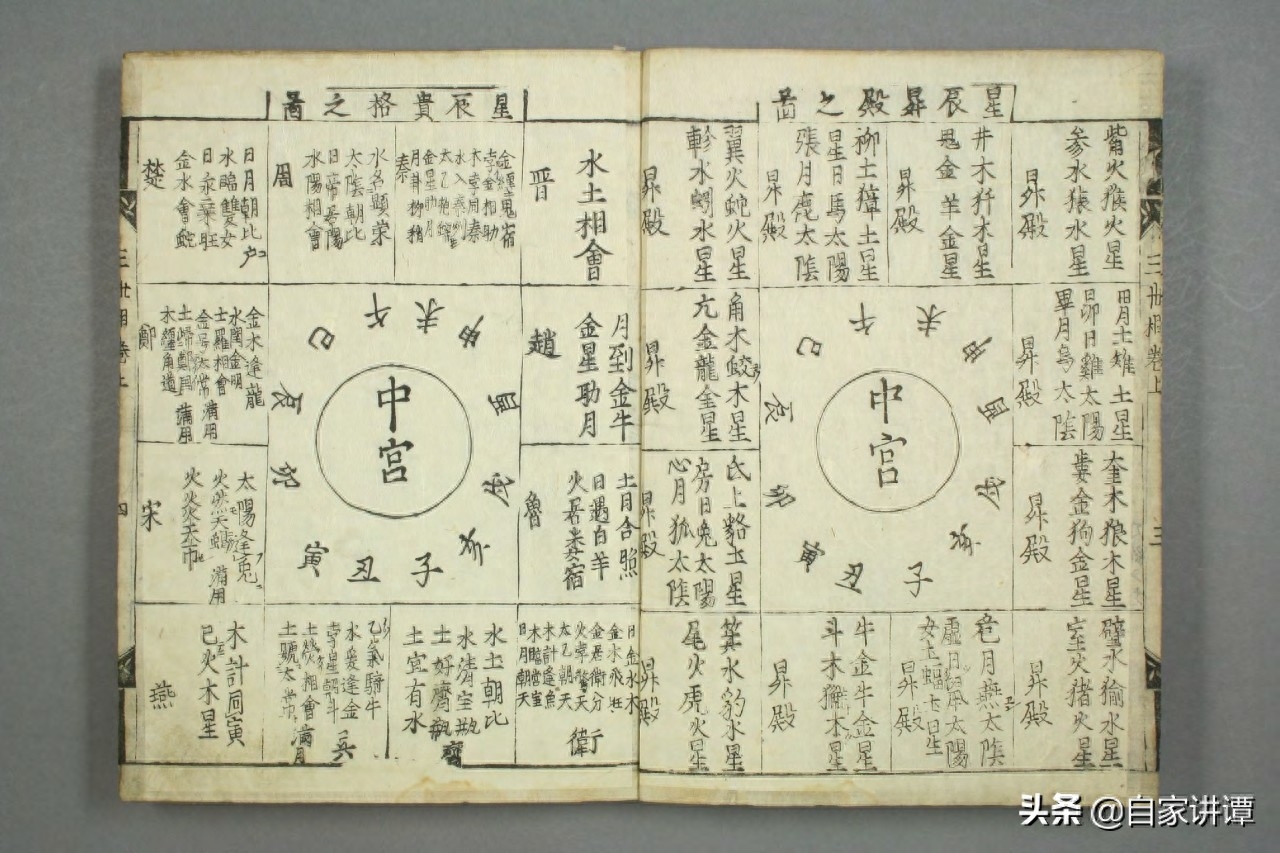 星辰昇殿之啚
觜火猴火星
参水猿水星
昇殿
井木犴木星
鬼金羊金星
昇殿
柳土獐土星
星日馬太陽
張月鹿太陰
昇殿
翼火蛇火星
軫水蚓水星
昇殿
胃土雉土星
昴日雞太陽
畢月烏太陰
昇殿
角木蛟木星
亢金龍金星
昇殿
奎木狼木星
婁金狗金星
昇殿
氐土貉土星
房日兔太陽
心月狐太陰
昇殿
壁水㺄水星
室火猪火星
昇殿
危月燕太陰
虛日鼠太陽
女土蝠土星
昇殿
牛金牛金星
斗木獬木星
昇殿
箕水豹水星
尾火虎火星
昇殿
中宮
子
丑
寅
卯
辰
巳
午
未
申
酉
戌
亥
三世相卷上
三
星辰貴格之啚
水土相會
晋
金纏鬼宿
孛金相助
木孛同秦
水入秦州
金星助月
月掛柳梢
秦
水名顯荣
太陰朝比
日帝居陽
水陽相會
周
日月朝比
水臨雙女
日汞乘旺
金水會蛇
楚
月到金牛
金星助月
趙
金水逢龍
土羅相會
木纏角道
鄭
土月合照
日遇白羊
火居婁宿
魯
太陽逢兎
火炎天市
宋
日月朝天
衛
水土朝比
水清宝瓶
土好濟瓶
土宮有水
齊
水愛逢金
吴
木計同寅
巳火木星
燕
中宮
子
丑
寅
卯
辰
巳
午
未
申
酉
戌
亥
四
头条 @自家讲谭